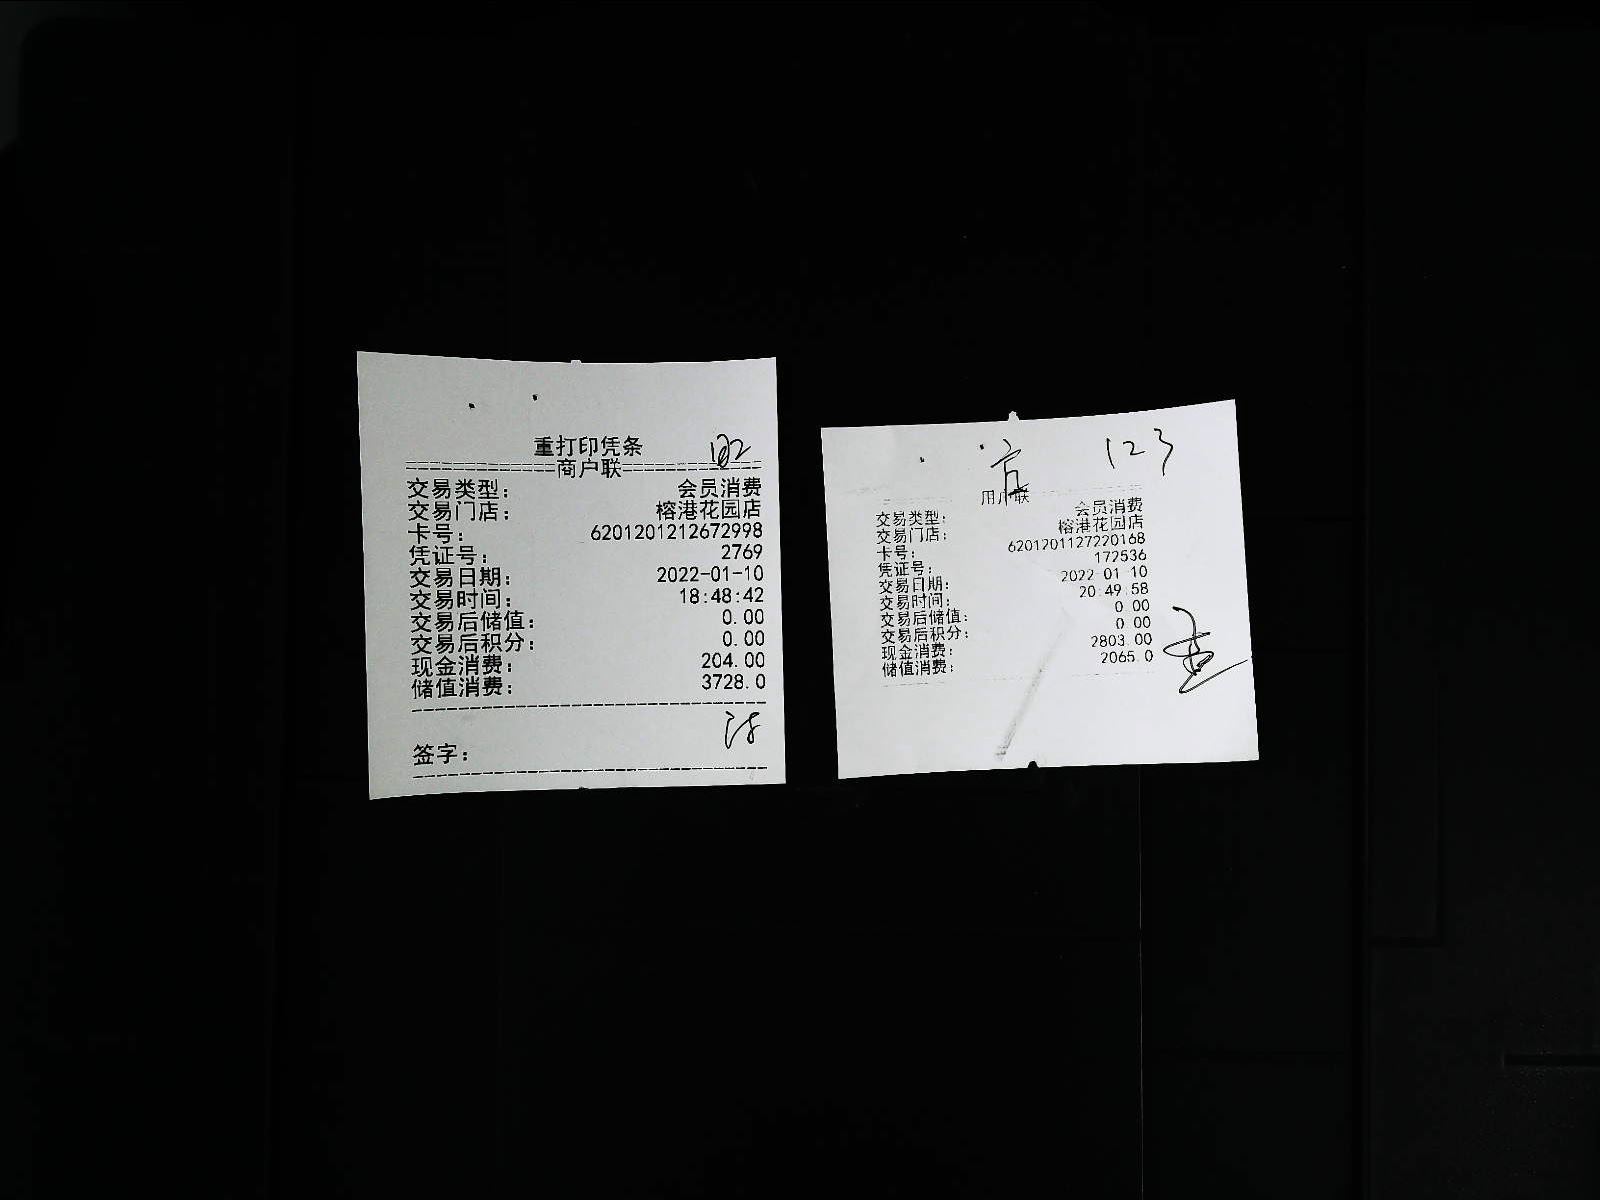 重打印凭条
商户联
交易类型： 会员消费
交易门店： 榕港花园店
卡号： 6201201212672998
凭证号： 2769
交易日期： 2022-01-10
交易时间： 18:48:42
交易后储值： 0.00
交易后积分： 0.00
现金消费： 204.00
储值消费： 3728.0
签字：
123
用户联
交易类型： 会员消费
交易门店： 榕港花园店
卡号： 6201201127220168
凭证号： 172536
交易日期： 2022-01-10
交易时间： 20:49:58
交易后储值： 0.00
交易后积分： 0.00
现金消费： 2803.00
储值消费： 2065.0